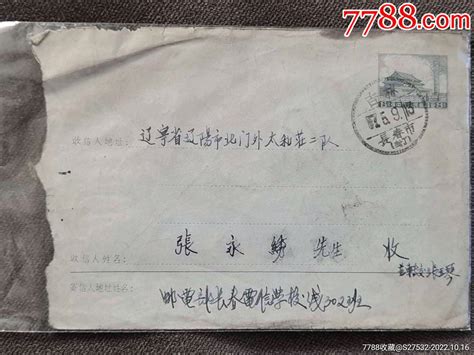 7788.com
收信人地址:
辽宁省辽阳市北门外大和莊二队
長春市
收信人姓名:
張永 先生 收
寄信人地址姓名:
邮电部长春电信学校 302班
7788收藏@S27532 2022.10.16